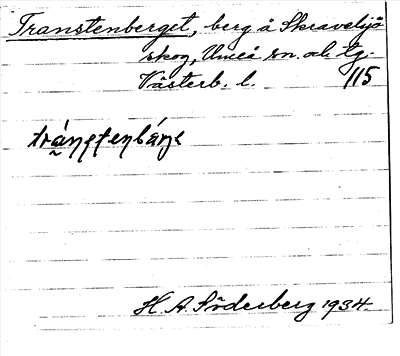 Transtenberget, berg å Skravelsjö
skog, Umeå sn. ol. tg.
Västerb. l. 115
H. A. Söderberg 1934.